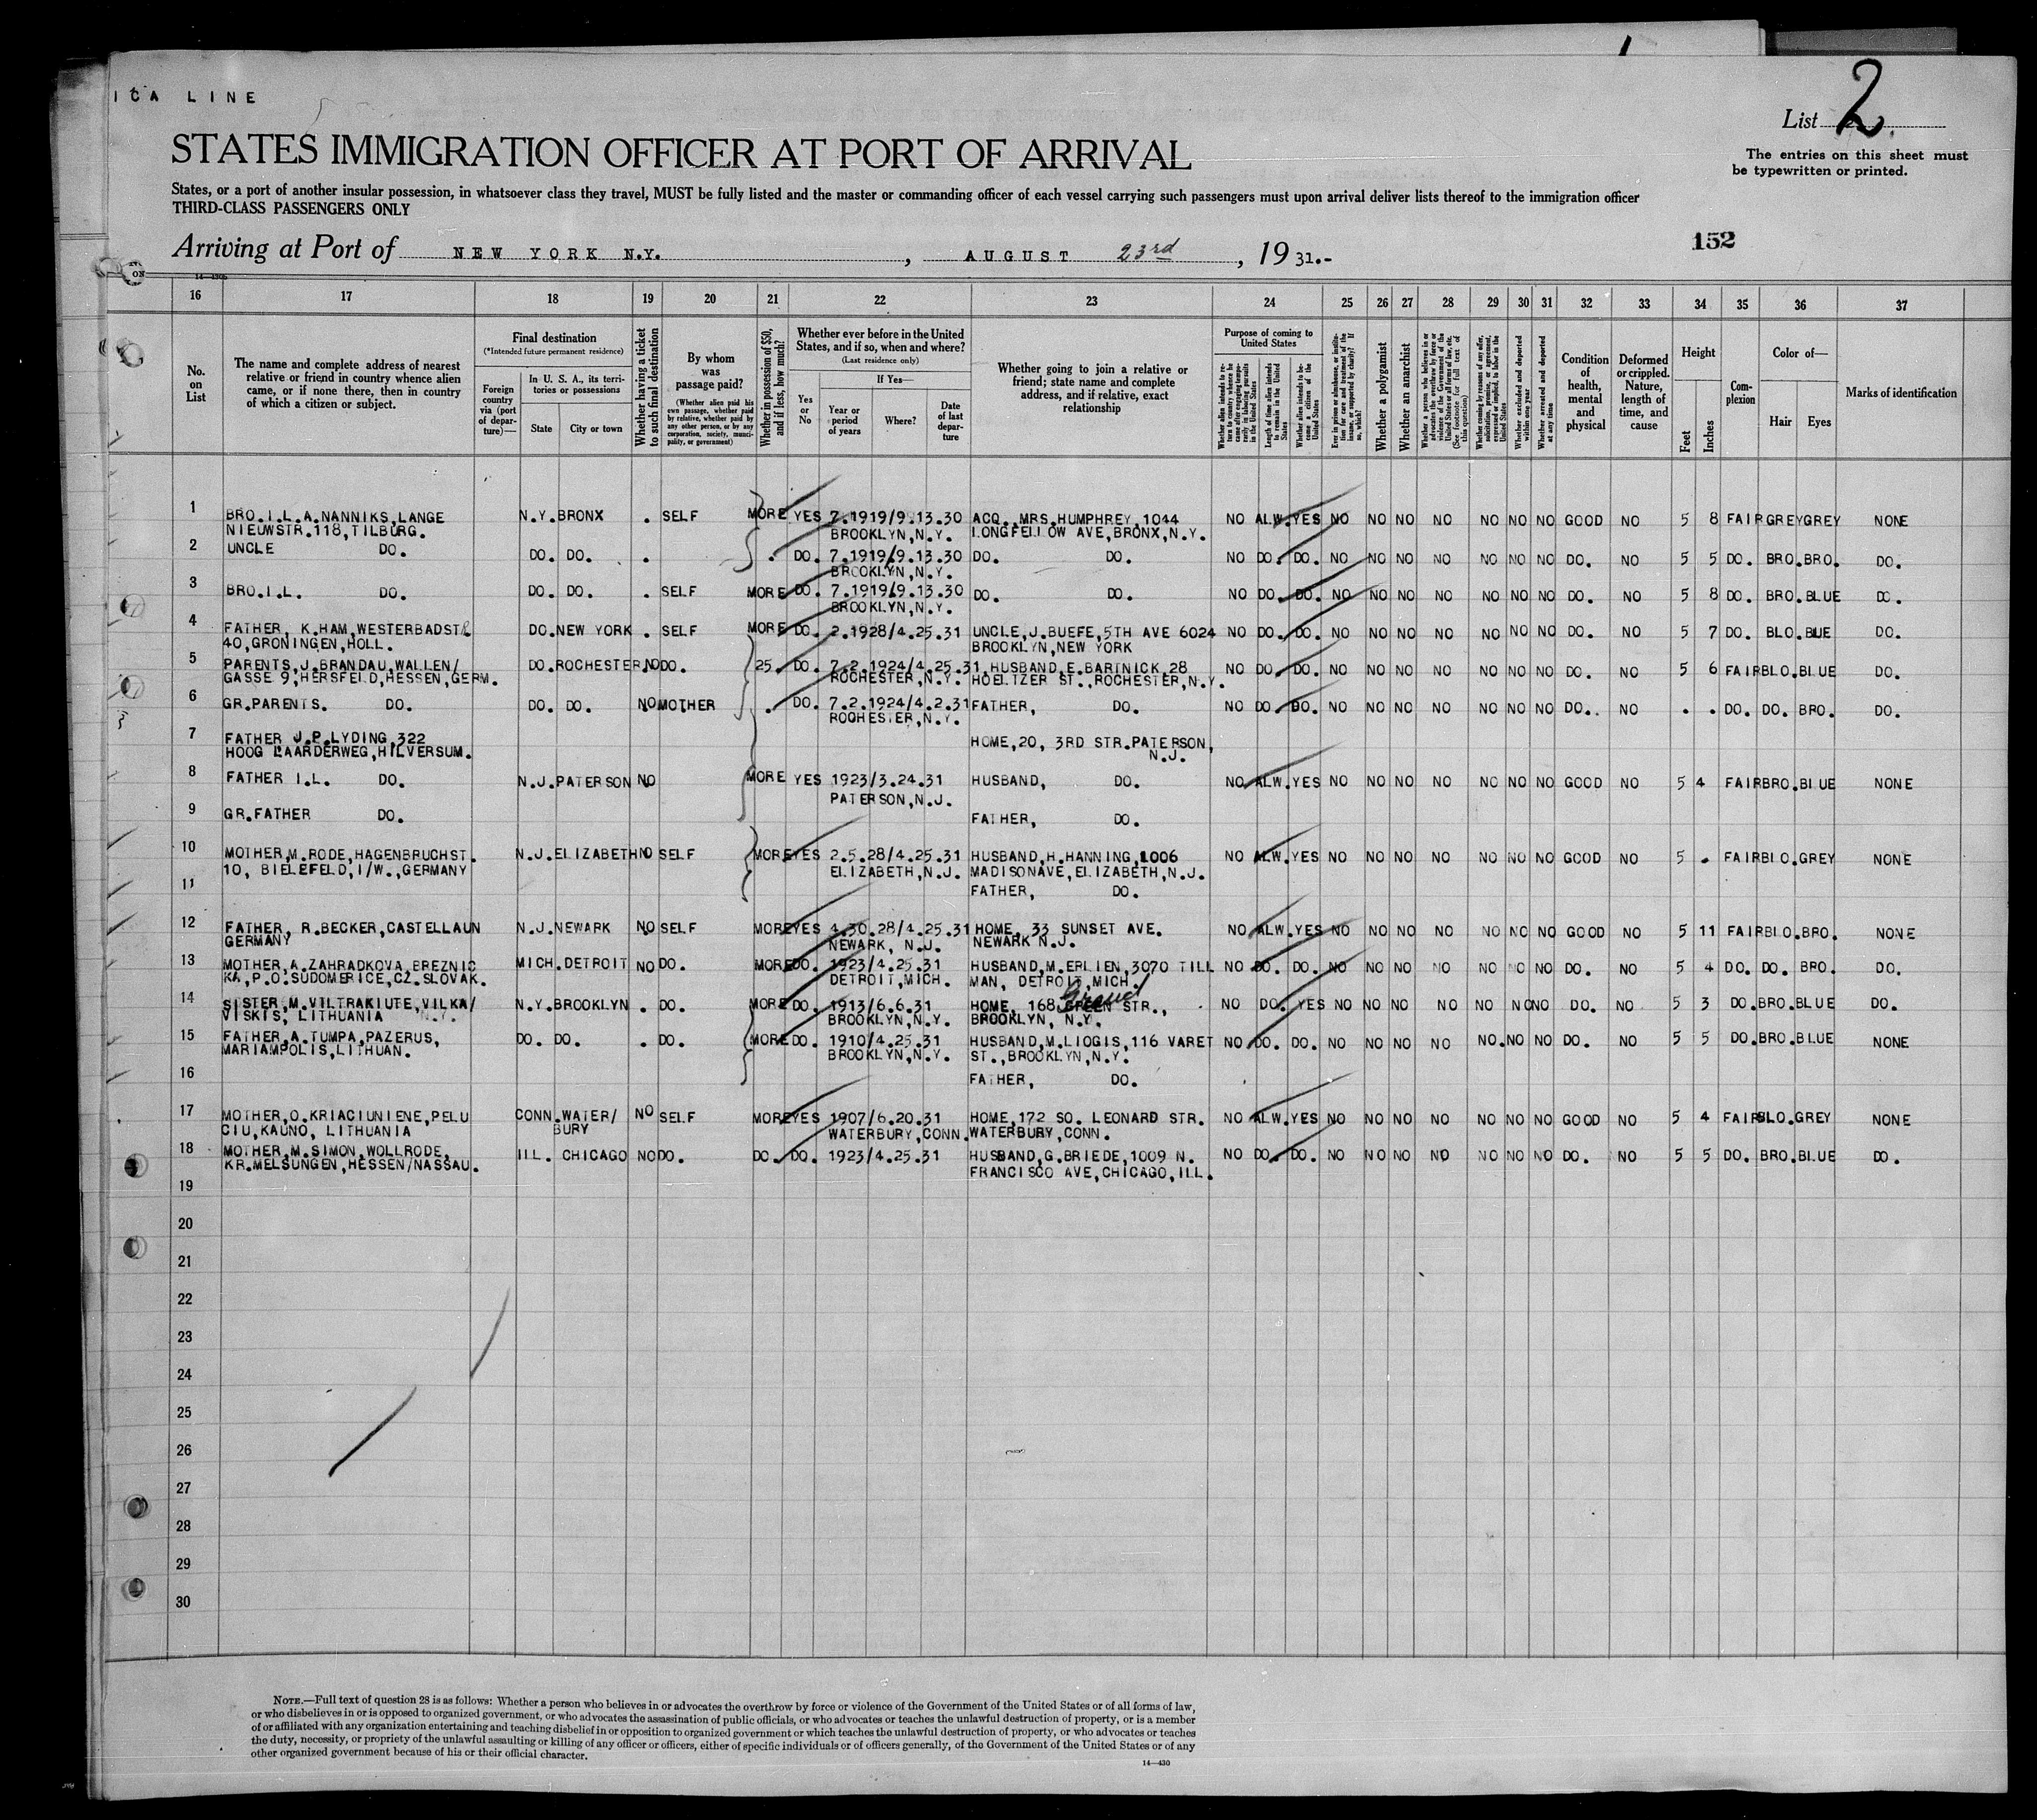 ICA LINE
List 2.
STATES IMMIGRATION OFFICER AT PORT OF ARRIVAL
The entries on this sheet must
be typewritten or printed.
States, or a port of another insular possession, in whatsoever class they travel, MUST be fully listed and the master or commanding officer of each vessel carrying such passengers must upon arrival deliver lists thereof to the immigration officer
THIRD-CLASS PASSENGERS ONLY
152
Arriving at Port of NEW YORK N.Y. , AUGUST 23rd , 19 31.-
16 17 18 19 20 21 22 23 24 25 26 27 28 29 30 31 32 33 34 35 36 37
No. on List
The name and complete address of nearest relative or friend in country whence alien came, or if none there, then in country of which a citizen or subject.
Final destination
(*Intended future permanent residence)
Foreign country via (port of departure)—
In U. S. A., its territories or possessions
State
City or town
Whether having a ticket to such final destination
By whom was passage paid?
(Whether alien paid his own passage, whether paid by relative, whether paid by any other person, or by any corporation, society, municipality, or government)
Whether in possession of $50, and if less, how much?
Whether ever before in the United States, and if so, when and where?
(Last residence only)
Yes or No
If Yes—
Year or period of years
Where?
Date of last departure
Whether going to join a relative or friend; state name and complete address, and if relative, exact relationship
Purpose of coming to United States
Whether alien intends to return to country whence he came after engaging temporarily in laboring pursuits in the United States
Length of time alien intends to remain in the United States
Whether alien intends to become a citizen of the United States
Ever in prison or almshouse or institution for care and treatment of the insane, or supported by charity? If so, which?
Whether a polygamist
Whether an anarchist
Whether a person who believes in or advocates the overthrow by force or violence of the Government of the United States or all forms of law, etc. (See footnote for full text of this question)
Whether coming by reasons of any offer, solicitation, promise, or agreement, expressed or implied, to labor in the United States
Whether excluded and deported within one year
Whether arrested and deported at any time
Condition of health, mental and physical
Deformed or crippled. Nature, length of time, and cause
Height
Feet
Inches
Complexion
Color of—
Hair
Eyes
Marks of identification
1 BRO.I.L.A.NANNIKS,LANGE N.Y. BRONX . SELF MORE YES 7.1919/9.13.30 ACQ.,MRS.HUMPHREY,1044 NO ALW. YES NO NO NO NO NO NO NO GOOD NO 5 8 FAIR GREY GREY NONE
NIEUWSTR.118,TILBURG. BROOKLYN,N.Y. LONGFELLOW AVE,BRONX,N.Y.
2 UNCLE DO. DO. DO. . . DO. 7.1919/9.13.30 DO. DO. NO DO. DO. NO NO NO NO NO NO NO DO. NO 5 5 DO. BRO. BRO. DO.
BROOKLYN,N.Y.
3 BRO.I.L. DO. DO. DO. . SELF MORE DO. 7.1919/9.13.30 DO. DO. NO DO. DO. NO NO NO NO NO NO NO DO. NO 5 8 DO. BRO. BLUE DO.
BROOKLYN,N.Y.
4 FATHER, K.HAM,WESTERBADSTR DO. NEW YORK . SELF MORE DO. 2.1928/4.25.31 UNCLE,J.BUEFE,5TH AVE 6024 NO DO. DO. NO NO NO NO NO NO NO DO. NO 5 7 DO. BLO. BLUE DO.
40,GRONINGEN,HOLL. BROOKLYN,NEW YORK
5 PARENTS,J.BRANDAU,WALLEN/ DO. ROCHESTER, NO DO. 25. DO. 7.2.1924/4.25.31, HUSBAND,E.BARTNICK,28 NO DO. DO. NO NO NO NO NO NO NO DO. NO 5 6 FAIR BLO. BLUE DO.
GASSE 9,HERSFELD,HESSEN,GERM. ROCHESTER,N.Y. HOELTZER ST.,ROCHESTER,N.Y.
6 GR.PARENTS. DO. DO. DO. NO MOTHER . DO. 7.2.1924/4.2.31 FATHER, DO. NO DO. DO. NO NO NO NO NO NO NO DO.. NO . . DO. DO. BRO. DO.
ROCHESTER,N.Y.
7 FATHER J.P.LYDING,322 HOME,20, 3RD STR.PATERSON,
HOOG LAARDERWEG,HILVERSUM. N.J.
8 FATHER I.L. DO. N.J. PATERSON NO MORE YES 1923/3.24.31 HUSBAND, DO. NO ALW. YES NO NO NO NO NO NO NO GOOD NO 5 4 FAIR BRO. BLUE NONE
PATERSON,N.J.
9 GR.FATHER DO. FATHER, DO.
10 MOTHER,M.RODE,HAGENBRUCHST. N.J. ELIZABETH NO SELF MORE YES 2.5.28/4.25.31 HUSBAND,H.HANNING,1006 NO ALW. YES NO NO NO NO NO NO NO GOOD NO 5 . FAIR BLO. GREY NONE
10, BIELEFELD,I/W.,GERMANY ELIZABETH,N.J. MADISONAVE,ELIZABETH,N.J.
11 FATHER, DO.
12 FATHER, R.BECKER,CASTELLAUN N.J. NEWARK NO SELF MORE YES 4.30.28/4.25.31 HOME, 33 SUNSET AVE. NO ALW. YES NO NO NO NO NO NO NO GOOD NO 5 11 FAIR BLO. BRO. NONE
GERMANY NEWARK, N.J. NEWARK N.J.
13 MOTHER,A.ZAHRADKOVA,BREZNIC MICH. DETROIT NO DO. MORE DO. 1923/4.25.31 HUSBAND,M.ERLIEN,3070 TILL NO DO. DO. NO NO NO NO NO NO NO DO. NO 5 4 DO. DO. BRO. DO.
KA,P.O.SUDOMERICE,CZ.SLOVAK. DETROIT,MICH. MAN, DETROIT,MICH.
14 SISTER,M.VILTRAKIUTE,VILKA/ N.Y. BROOKLYN . DO. MORE DO. 1913/6.6.31 HOME, 168 Grand STR., NO DO. YES NO NO NO NO NO NO NO DO. NO 5 3 DO. BRO. BLUE DO.
VISKIS, LITHUANIA N.Y. BROOKLYN,N.Y. BROOKLYN, N.Y.
15 FATHER,A.TUMPA,PAZERUS, DO. DO. . DO. MORE DO. 1910/4.25.31 HUSBAND,M.LIOGIS,116 VARET NO DO. DO. NO NO NO NO NO. NO NO DO. NO 5 5 DO. BRO. BLUE NONE
MARIAMPOLIS,LITHUAN. BROOKLYN,N.Y. ST.,BROOKLYN,N.Y.
16 FATHER, DO.
17 MOTHER,O.KRIACIUNIENE,PELU CONN. WATER/ NO SELF MORE YES 1907/6.20.31 HOME,172 SO. LEONARD STR. NO ALW. YES NO NO NO NO NO NO NO GOOD NO 5 4 FAIR BLO. GREY NONE
CIU,KAUNO, LITHUANIA BURY WATERBURY,CONN. WATERBURY,CONN.
18 MOTHER,M.SIMON,WOLLRODE, ILL. CHICAGO NO DO. DO. DO. 1923/4.25.31 HUSBAND,G.BRIEDE,1009 N. NO DO. DO. NO NO NO NO NO NO NO DO. NO 5 5 DO. BRO. BLUE DO.
KR.MELSUNGEN,HESSEN/NASSAU. FRANCISCO AVE,CHICAGO,ILL.
19
20
21
22
23
24
25
26
27
28
29
30
NOTE.—Full text of question 28 is as follows: Whether a person who believes in or advocates the overthrow by force or violence of the Government of the United States or of all forms of law,
or who disbelieves in or is opposed to organized government, or who advocates the assassination of public officials, or who advocates or teaches the unlawful destruction of property, or is a member
of or affiliated with any organization entertaining and teaching disbelief in or opposition to organized government or which teaches the unlawful destruction of property, or who advocates or teaches
the duty, necessity, or propriety of the unlawful assaulting or killing of any officer or officers, either of specific individuals or of officers generally, of the Government of the United States or of any
other organized government because of his or their official character.
14—430